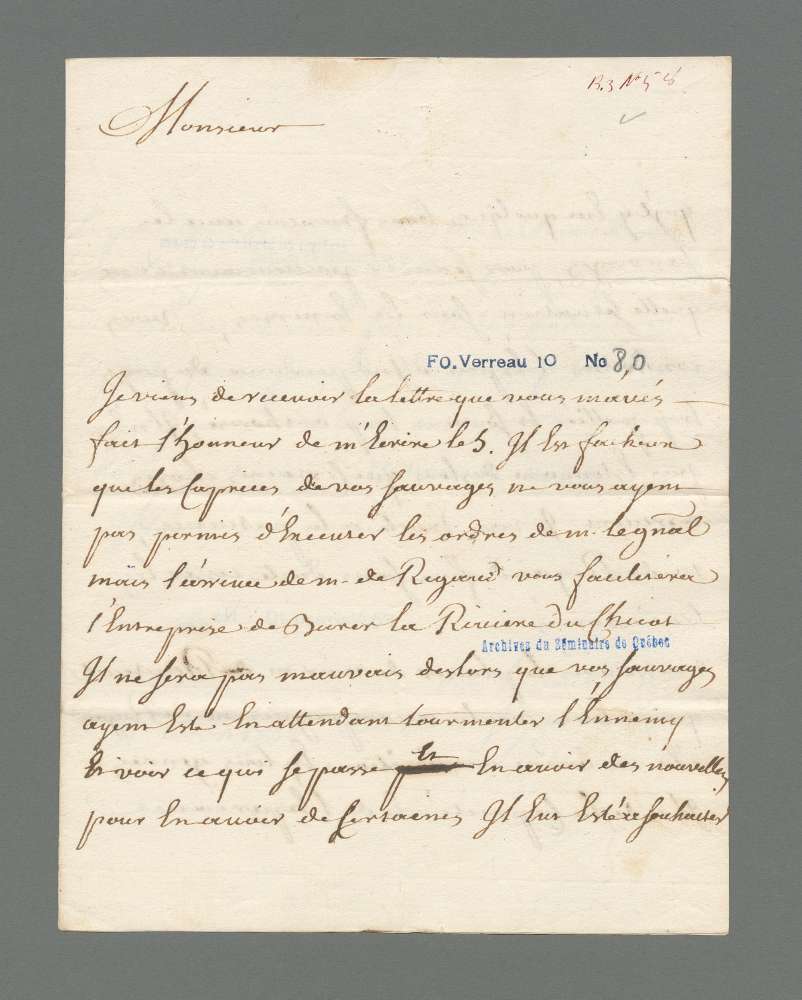 B.3 N° 58
Monsieur
FO. Verreau 10 No 80
Je viens de recevoir la lettre que vous mavés
fait l'honneur de m'Ecrire le 5. Il Est facheux
que les Caprices de vos sauvages ne vous ayent
pas permis d'Executer les ordres de m. le gnãl
mais l'arrivée de m. de Rigaud vous facilitera
l'Entreprise de Barer la Riviere du Chicot
Archives du Séminaire de Québec
Il ne sera pas mauvais deslors que vos sauvages
ayent Esté En attendant tourmenter l'Ennemy
Et voir ce qui se passe Et En avoir des nouvelles
pour En avoir de Certaines Il Eut Esté a souhaiter